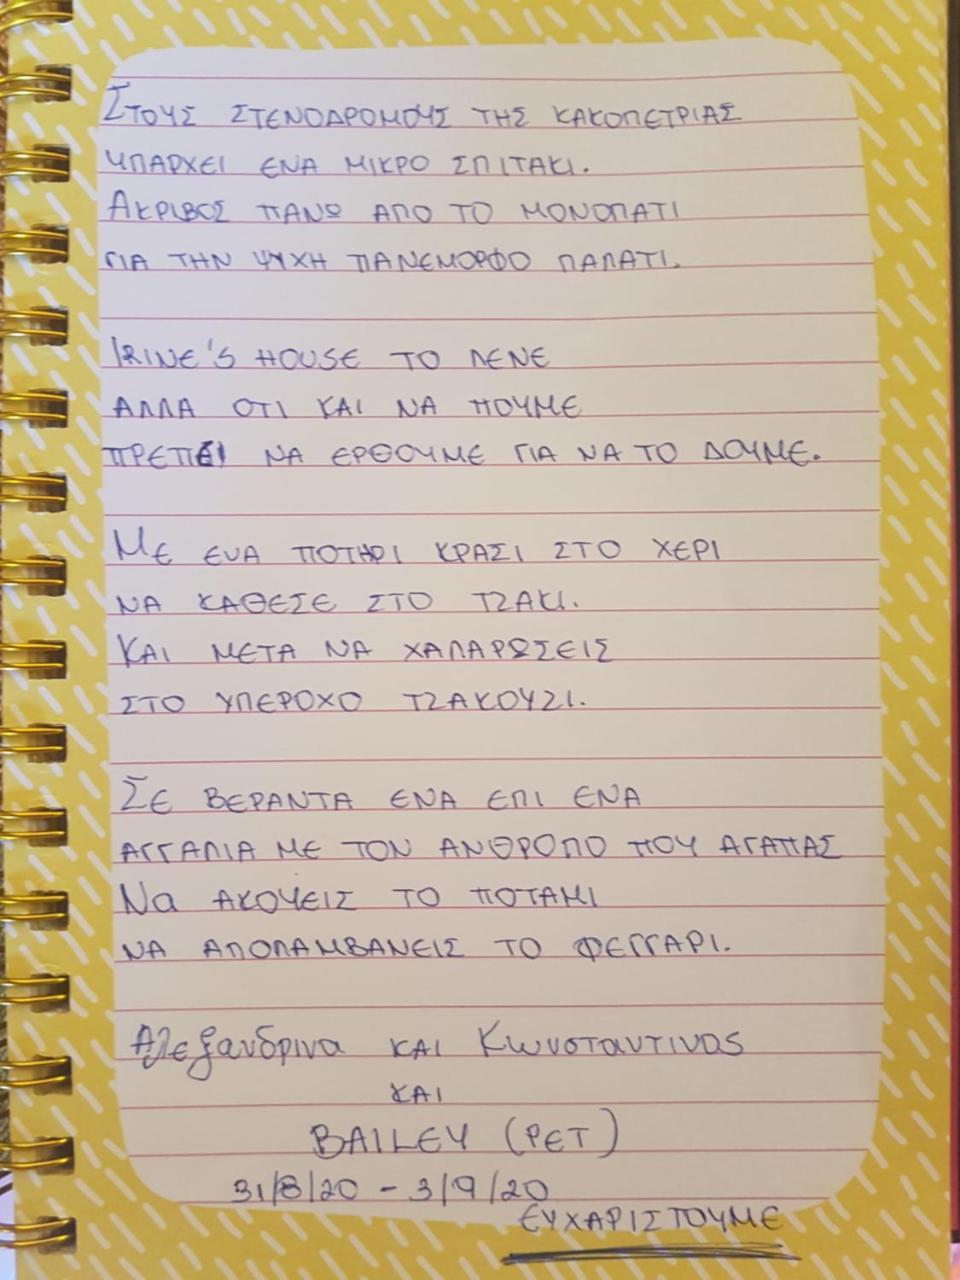 ΣΤΟΥΣ ΣΤΕΝΟΔΡΟΜΟΥΣ ΤΗΣ ΚΑΚΟΠΕΤΡΙΑΣ
ΥΠΑΡΧΕΙ ΕΝΑ ΜΙΚΡΟ ΣΠΙΤΑΚΙ.
ΑΚΡΙΒΟΣ ΠΑΝΩ ΑΠΟ ΤΟ ΜΟΝΟΠΑΤΙ
ΓΙΑ ΤΗΝ ΨΥΧΗ ΠΑΝΕΜΟΡΦΟ ΠΑΛΑΤΙ.
IRINE'S HOUSE ΤΟ ΛΕΝΕ
ΑΛΛΑ ΟΤΙ ΚΑΙ ΝΑ ΠΟΥΜΕ
ΠΡΕΠΕΙ ΝΑ ΕΡΘΟΥΜΕ ΓΙΑ ΝΑ ΤΟ ΔΟΥΜΕ.
ΜΕ ΕΝΑ ΠΟΤΗΡΙ ΚΡΑΣΙ ΣΤΟ ΧΕΡΙ
ΝΑ ΚΑΘΕΣΕ ΣΤΟ ΤΖΑΚΙ.
ΚΑΙ ΜΕΤΑ ΝΑ ΧΑΛΑΡΩΣΕΙΣ
ΣΤΟ ΥΠΕΡΟΧΟ ΤΖΑΚΟΥΖΙ.
ΣΕ ΒΕΡΑΝΤΑ ΕΝΑ ΕΠΙ ΕΝΑ
ΑΓΓΑΛΙΑ ΜΕ ΤΟΝ ΑΝΘΡΟΠΟ ΠΟΥ ΑΓΑΠΑΣ
Να ΑΚΟΥΕΙΣ ΤΟ ΠΟΤΑΜΙ
ΝΑ ΑΠΟΛΑΜΒΑΝΕΙΣ ΤΟ ΦΕΓΓΑΡΙ.
Αλεξανδρινα ΚΑΙ Κωνσταντινος
ΚΑΙ
BAILEY (PET)
31/8/20 - 3/9/20
ΕΥΧΑΡΙΣΤΟΥΜΕ